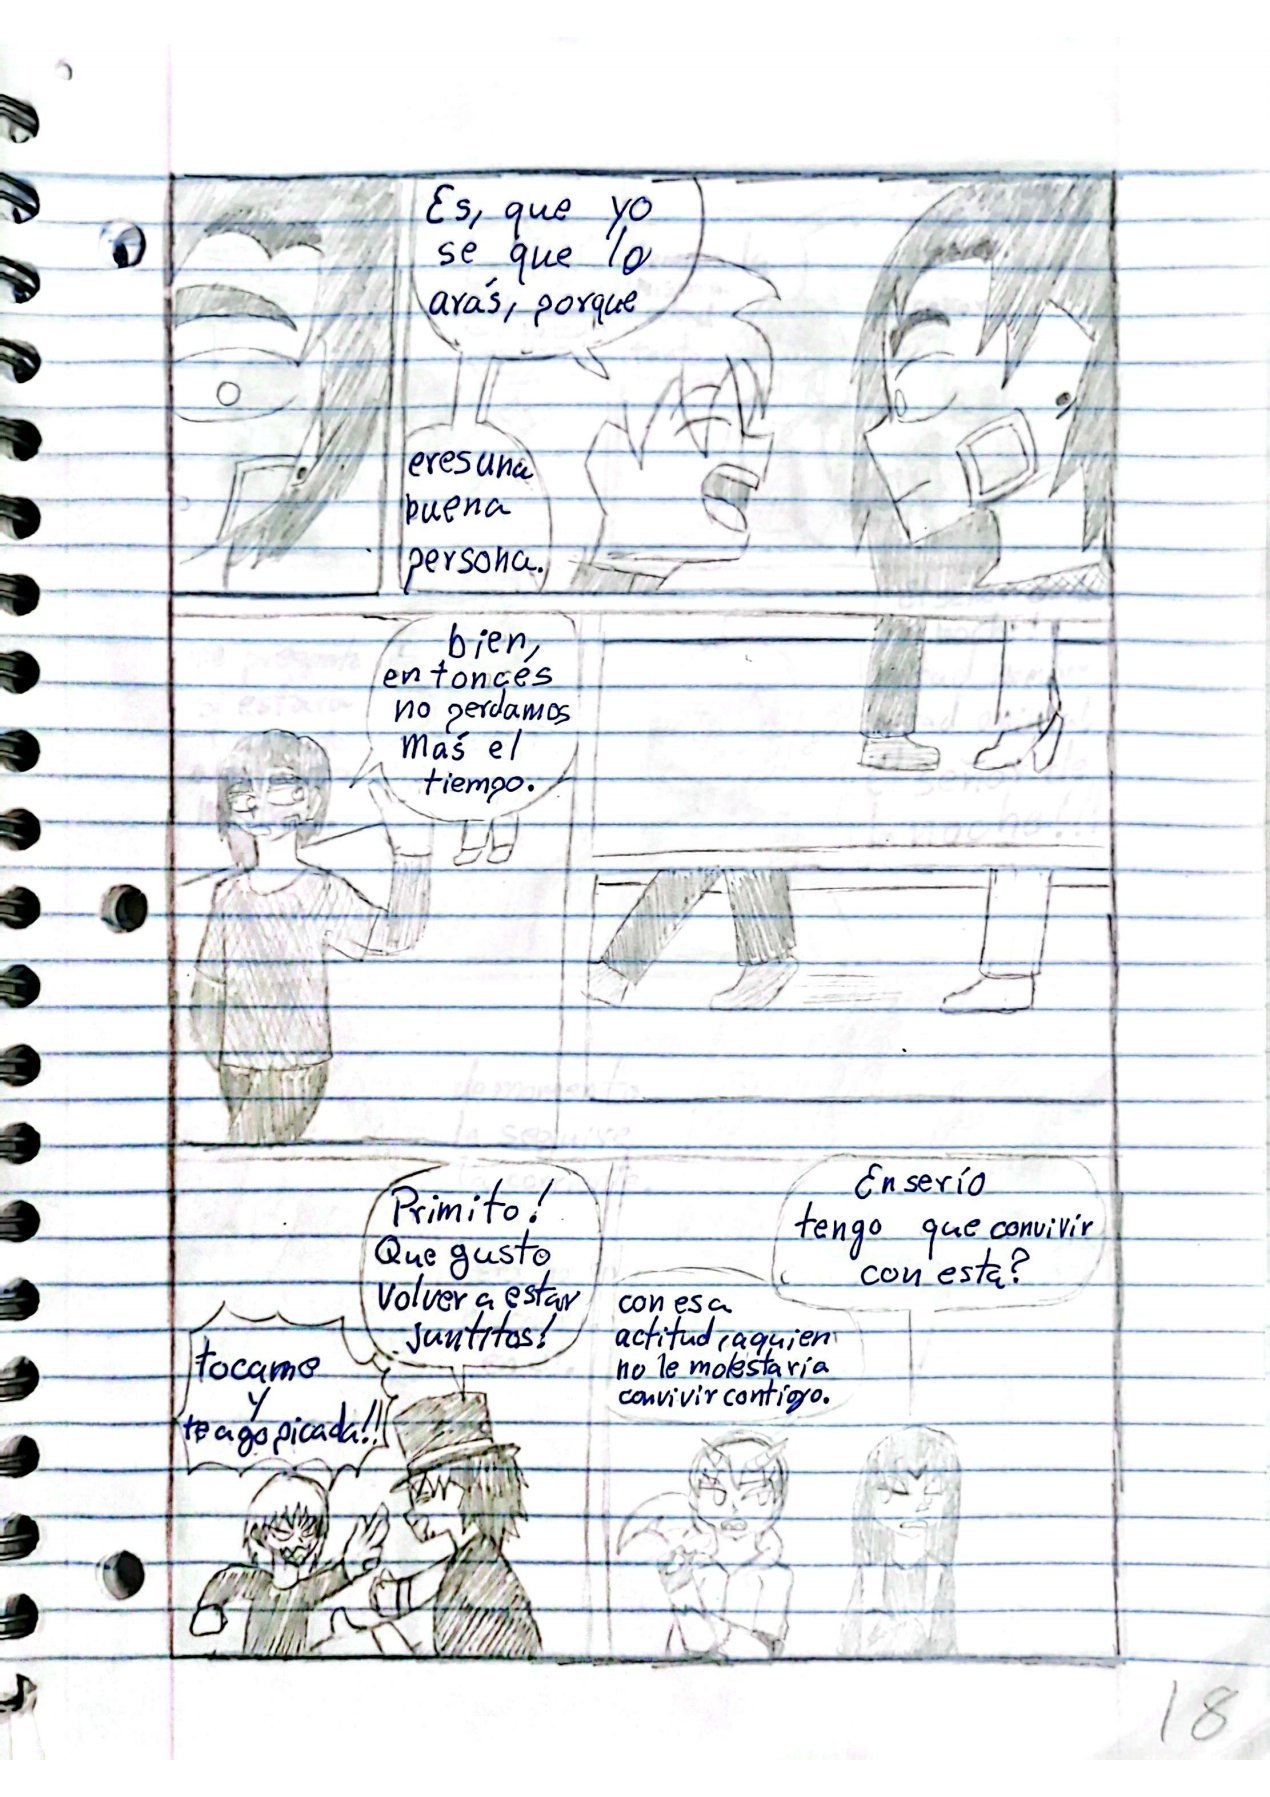 Es, que yo
se que lo
arás, porque
eres una
buena
persona.
bien,
entonces
no perdamos
más el
tiempo.
Primito!
Que gusto
volver a estar
juntitos!
tocame
y
te ago picada!!
En serío
tengo que convivir
con esta?
con esa
actitud, a quien
no le molestaría
convivir contigo.
18